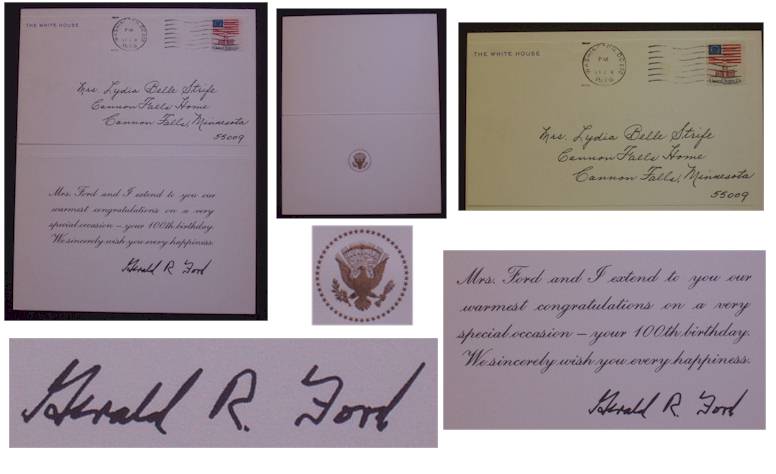 THE WHITE HOUSE
PM
1976
Mrs. Lydia Belle Strife
Cannon Falls Home
Cannon Falls, Minnesota
55009
Mrs. Ford and I extend to you our
warmest congratulations on a very
special occasion – your 100th birthday.
We sincerely wish you every happiness.
Gerald R. Ford
THE WHITE HOUSE
WASHINGTON, DC
PM
1976
Mrs. Lydia Belle Strife
Cannon Falls Home
Cannon Falls, Minnesota
55009
Gerald R. Ford
Mrs. Ford and I extend to you our
warmest congratulations on a very
special occasion – your 100th birthday.
We sincerely wish you every happiness.
Gerald R. Ford